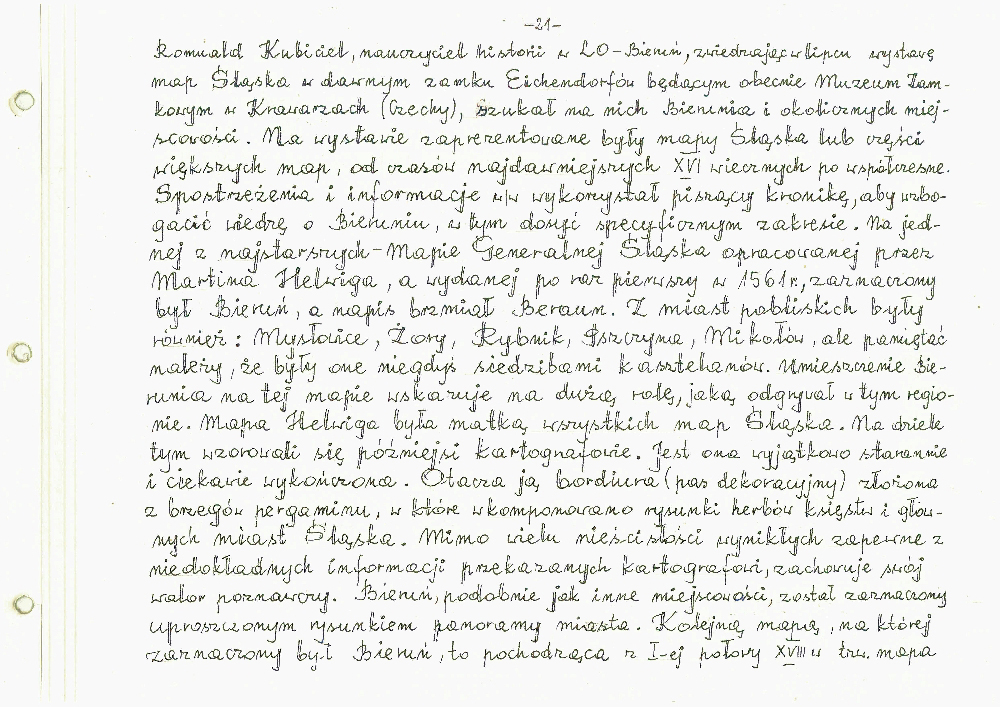 -21-
Romuald Kubiciel, nauczyciel historii w LO-Bieruń, zwiedzając w lipcu wystawę
map Śląska w dawnym zamku Eichendorfów będącym obecnie Muzeum Zam-
kowym w Krawarzach (Czechy), szukał na nich Bierunia i okolicznych miej-
scowości. Na wystawie zaprezentowane były mapy Śląska lub części
większych map, od czasów najdawniejszych XVI wiecznych po współczesne.
Spostrzeżenia i informacje w/w wykorzystał piszący kronikę, aby wzbo-
gacić wiedzę o Bieruniu, w tym dosyć specyficznym zakresie. Na jed-
nej z najstarszych - Mapie Generalnej Śląska opracowanej przez
Martina Helwiga, a wydanej po raz pierwszy w 1561 r., zaznaczony
był Bieruń, a napis brzmiał Beraun. Z miast pobliskich były
również: Mysłowice, Żory, Rybnik, Pszczyna, Mikołów, ale pamiętać
należy, że były one niegdyś siedzibami kasztelanów. Umieszczenie Bie-
runia na tej mapie wskazuje na dużą rolę, jaką odgrywał w tym regio-
nie. Mapa Helwiga była matką wszystkich map Śląska. Na dziele
tym wzorowali się późniejsi kartografowie. Jest ona wyjątkowo starannie
i ciekawie wykończona. Otacza ją bordiura (pas dekoracyjny) złożona
z brzegów pergaminu, w które wkomponowano rysunki herbów księstw i głów-
nych miast Śląska. Mimo wielu nieścisłości wynikłych zapewne z
niedokładnych informacji przekazanych kartografowi, zachowuje swój
walor poznawczy. Bieruń, podobnie jak inne miejscowości, został zaznaczony
uproszczonym rysunkiem panoramy miasta. Kolejną mapą, na której
zaznaczony był Bieruń, to pochodząca z I-ej połowy XVIII w tzw. mapa